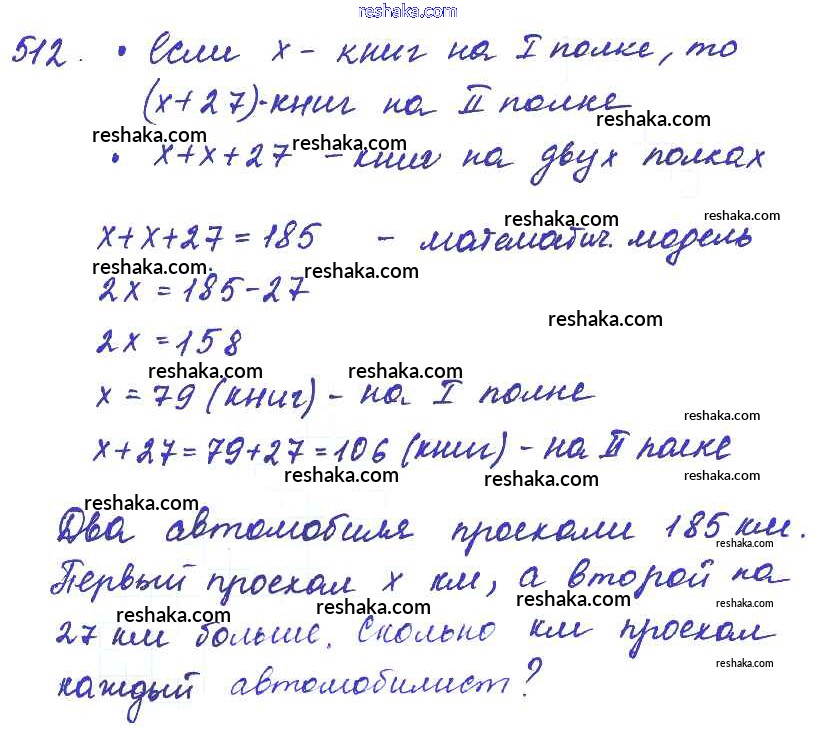 reshaka.com
512. • Если х - книг на I полке, то
(х+27)-книг на II полке
reshaka.com reshaka.com
• х+х+27 - книг на двух полках
reshaka.com reshaka.com
х+х+27=185 - математич. модель
reshaka.com reshaka.com
2х = 185-27
reshaka.com
2х = 158
reshaka.com reshaka.com
х = 79 (книг) - на I полке
reshaka.com
х+27=79+27=106 (книг) - на II полке
reshaka.com reshaka.com reshaka.com
reshaka.com
Два автомобиля проехали 185 км.
reshaka.com
Первый проехал х км, а второй на
reshaka.com reshaka.com reshaka.com reshaka.com
27 км больше. Сколько км проехал
reshaka.com
каждый автомобилист?